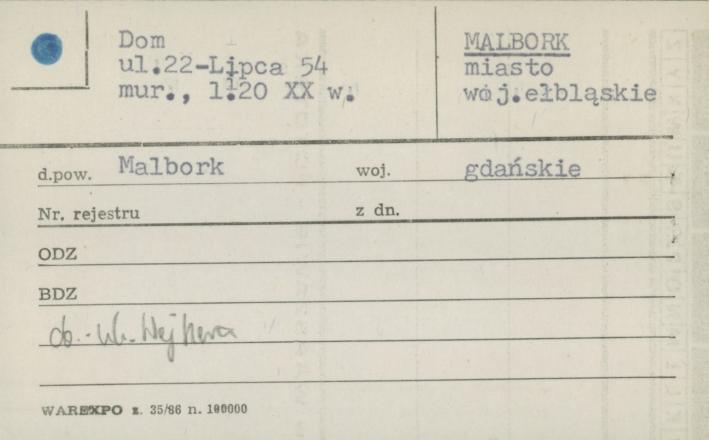 Dom
ul.22-Lipca 54
mur., l.20 XX w.
MALBORK
miasto
woj.elbląskie
d.pow. Malbork woj. gdańskie
Nr. rejestru z dn.
ODZ
BDZ
ob. ul. Wejhera
WAREXPO z. 35/86 n. 100000